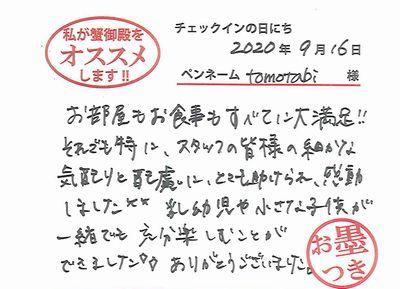 私が蟹御殿を
オススメ
します!!
チェックインの日にち
2020年9月16日
ペンネーム tomotabi 様
お部屋もお食事もすべてに大満足!!
それでも特に、スタッフの皆様の細かな
気配りと配慮に、とても助けられ、感動
しました** 乳幼児や小さな子供が
一緒でも充分楽しむことが
できました♡♡ ありがとうございました。
お墨
つき